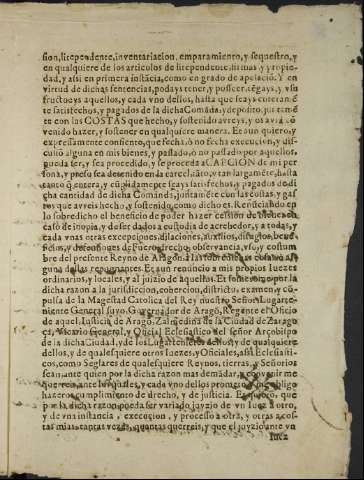 sion, litependente, inventariacion, emparamiento, y sequestro, y
en qualquiere de los articulos de litependente, firmas, y propie-
dad, y assi en primera instãcia, como en grado de apelaciõ. Y en
virtud de dichas sentencias, podays tener, y posseer, tẽgays, y vsu
fructueys aquellos, y cada vno dellos, hasta que seays enteramẽ
te satisfechos, y pagados de la dicha Comãda, y depósito, juntamẽ
te con las COSTAS que hecho, y sostenido avreys, y os avrà co
venido hazer, y sostener en qualquiere manera. Et aun quiero, y
expressamente consiento, que fecha, ò no fecha execucion, y dis-
cussiõ alguna en mis bienes, y passado, ò no passado por aquellos,
pueda ser, y sea procedido, y se proceda a CAPCION de mi per
sona, y preso sea detenido en la carcel, tãto, y tan largamẽte, hasta
tanto q̃ entera, y cũplidamẽte seays satisfechos, y pagados de di
cha cantidad de dicha Comanda, juntamẽte con las costas, y gas-
tos que avreis hecho, y sostenido, como dicho es. Renũciando en
lo sobredicho el beneficio de poder hazer cession de bienes en
caso de inopia, y de ser dado a custodia de acrehedor, y a todas, y
cada vnas otras excepciones, dilaciones, auxilios, difugios, bene-
ficios, y defensiones de Fuero, drecho, observancia, vso, y costum
bre del presente Reyno de Aragon, a las sobredichas cosas, o al-
guna dellas repugnantes. Et aun renuncio a mis propios Iuezes
ordinarios, y locales, y al juizio de aquellos. Et someteme por la
dicha razon a la jurisdiccion, cohercion, districtu, examen, y cõ-
pulsa de la Magestad Catolica del Rey nuestro Señor, Lugarte-
niente General suyo, Governador de Aragõ, Regãte el Oficio
de aquel, Iusticia de Aragõ, Zalmedina de la Ciudad de Zarago
ça, Vicario General, y Oficial Eclesiastico del señor Arçobispo
de la dicha Ciudad, y de los Lugartenientes dellos, y de qualquiere
dellos, y de qualesquiere otros Iuezes, y Oficiales, assi Eclesiasti-
cos, como Seglares de qualesquiere Reynos, tierras, y Señorios
sean, ante quien por la dicha razon mas demãdar, y convenir me
querreis, ante los quales, y cada vno dellos prometo, y me obligo
hazeros cumplimiento de drecho, y de justicia. Et quiero, que
por la dicha razon pueda ser variado juyzio de vn Iuez a otro,
y de vna instancia, execucion, y processo a otra, y otras a cos-
tas mias, tantas vezes, quantas querreis, y que el juyzio ante vn
Iuez